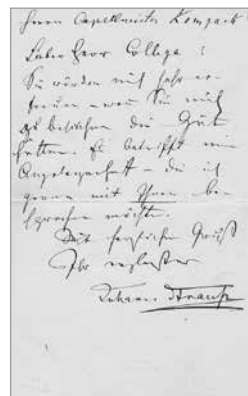 Herrn Capellmeister Komzak
Lieber Herr College!
Sie würden mich sehr er-
freuen – wenn Sie mich
zu besuchen die Güte
hätten. Es betrifft eine
Angelegenheit – die ich
gerne mit Ihnen be-
sprechen möchte.
Mit herzlichem Gruß
Ihr ergebenster
Johann Strauss